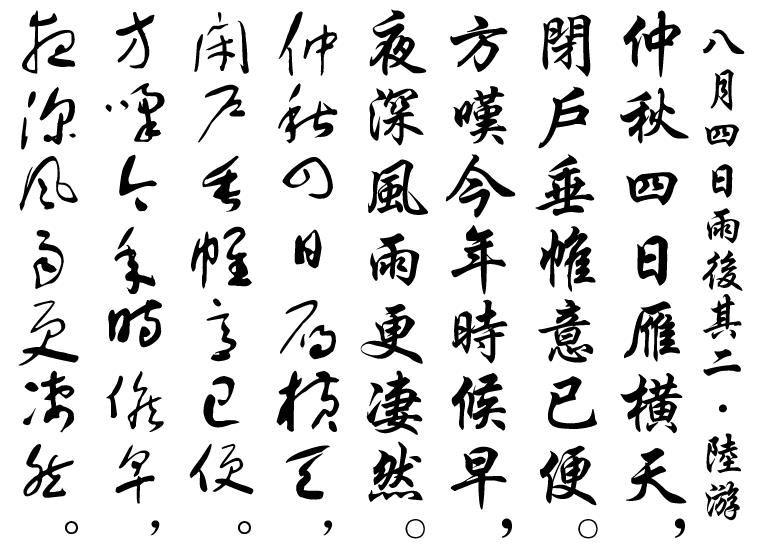 八月四日雨後其二·陸游
仲秋四日雁橫天，
閉戶垂帷意已便。
方嘆今年時候早，
夜深風雨更凄然。
仲秋四日雁橫天，
閉戶垂帷意已便。
方嘆今年時候早，
夜深風雨更凄然。